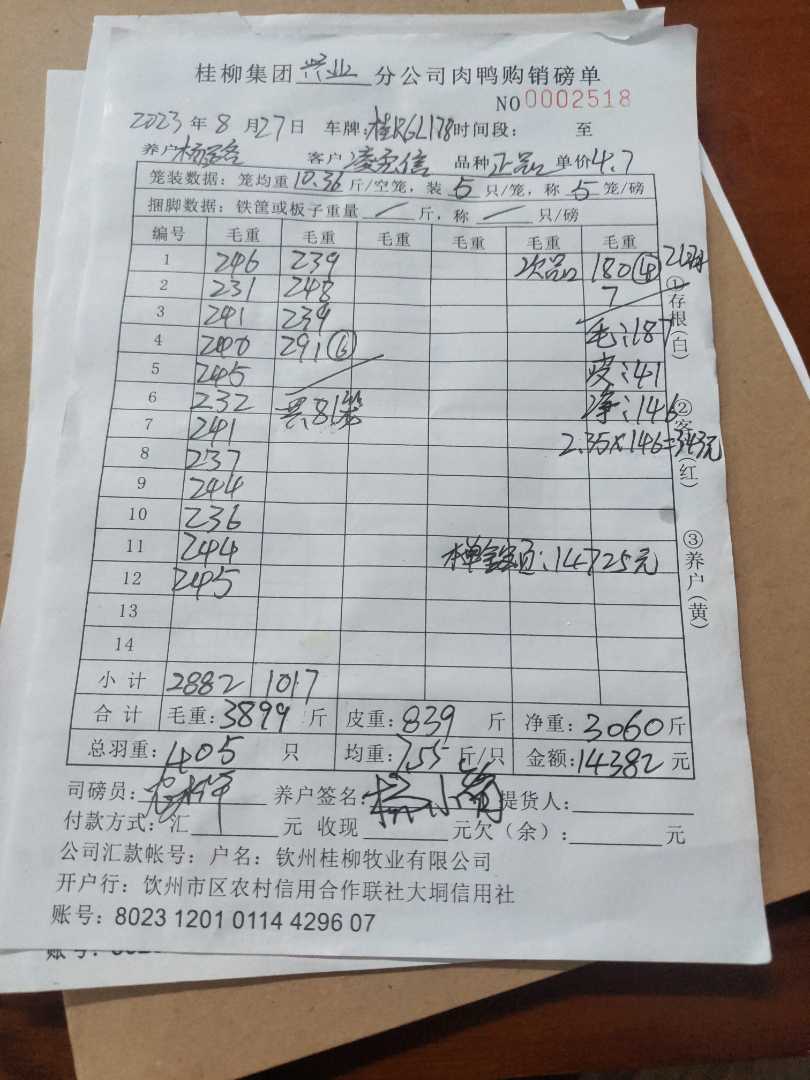 桂柳集团 兴业 分公司肉鸭购销磅单
NO 0002518
2023 年 8 月 27 日 车牌: 桂RGL178 时间段: 至
养户 杨 客户 凌 信 品种 正品 单价 4.7
笼装数据: 笼均重 10.36 斤/空笼, 装 5 只/笼, 称 5 笼/磅
捆脚数据: 铁筐或板子重量 / 斤, 称 / 只/磅
编号 毛重 毛重 毛重 毛重 毛重 毛重
1 246 239 次品 180 ④ 21只
2 231 248 7
3 241 239 毛:187
4 240 291 ⑥
5 245 皮:41
6 232 共81笼 净:146
7 241 2.35×146=343元
8 237
9 244
10 236
11 244 总金额:14725元
12 245
13
14
小计 2882 1017
合计 毛重: 3899 斤 皮重: 839 斤 净重: 3060 斤
总羽重: 405 只 均重: 7.55 斤/只 金额: 14382 元
司磅员: 养户签名: 提货人:
付款方式: 汇 元 收现 元欠(余): 元
公司汇款帐号: 户名: 钦州桂柳牧业有限公司
开户行: 饮州市区农村信用合作联社大垌信用社
账号: 8023 1201 0114 4296 07
①存根(白)
②客 (红)
③养户(黄)
账号: